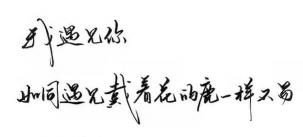 我遇见你
如同遇见戴着花的鹿一样不易